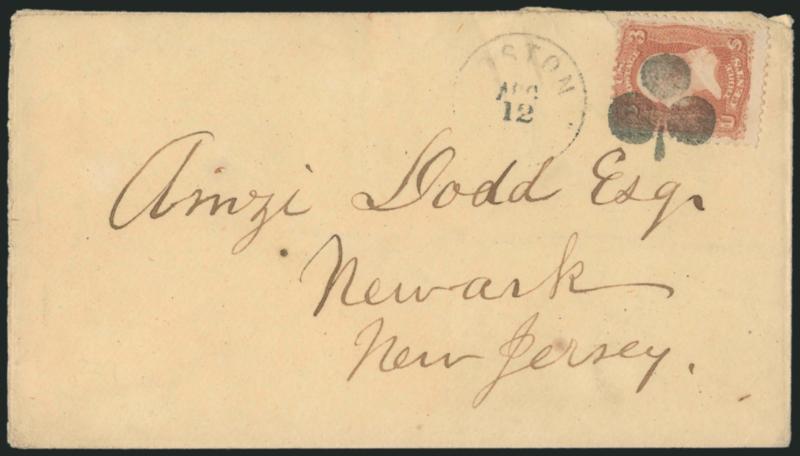 STON
AUG
12
3 U S
Amzi Dodd Esq.
Newark
New Jersey.